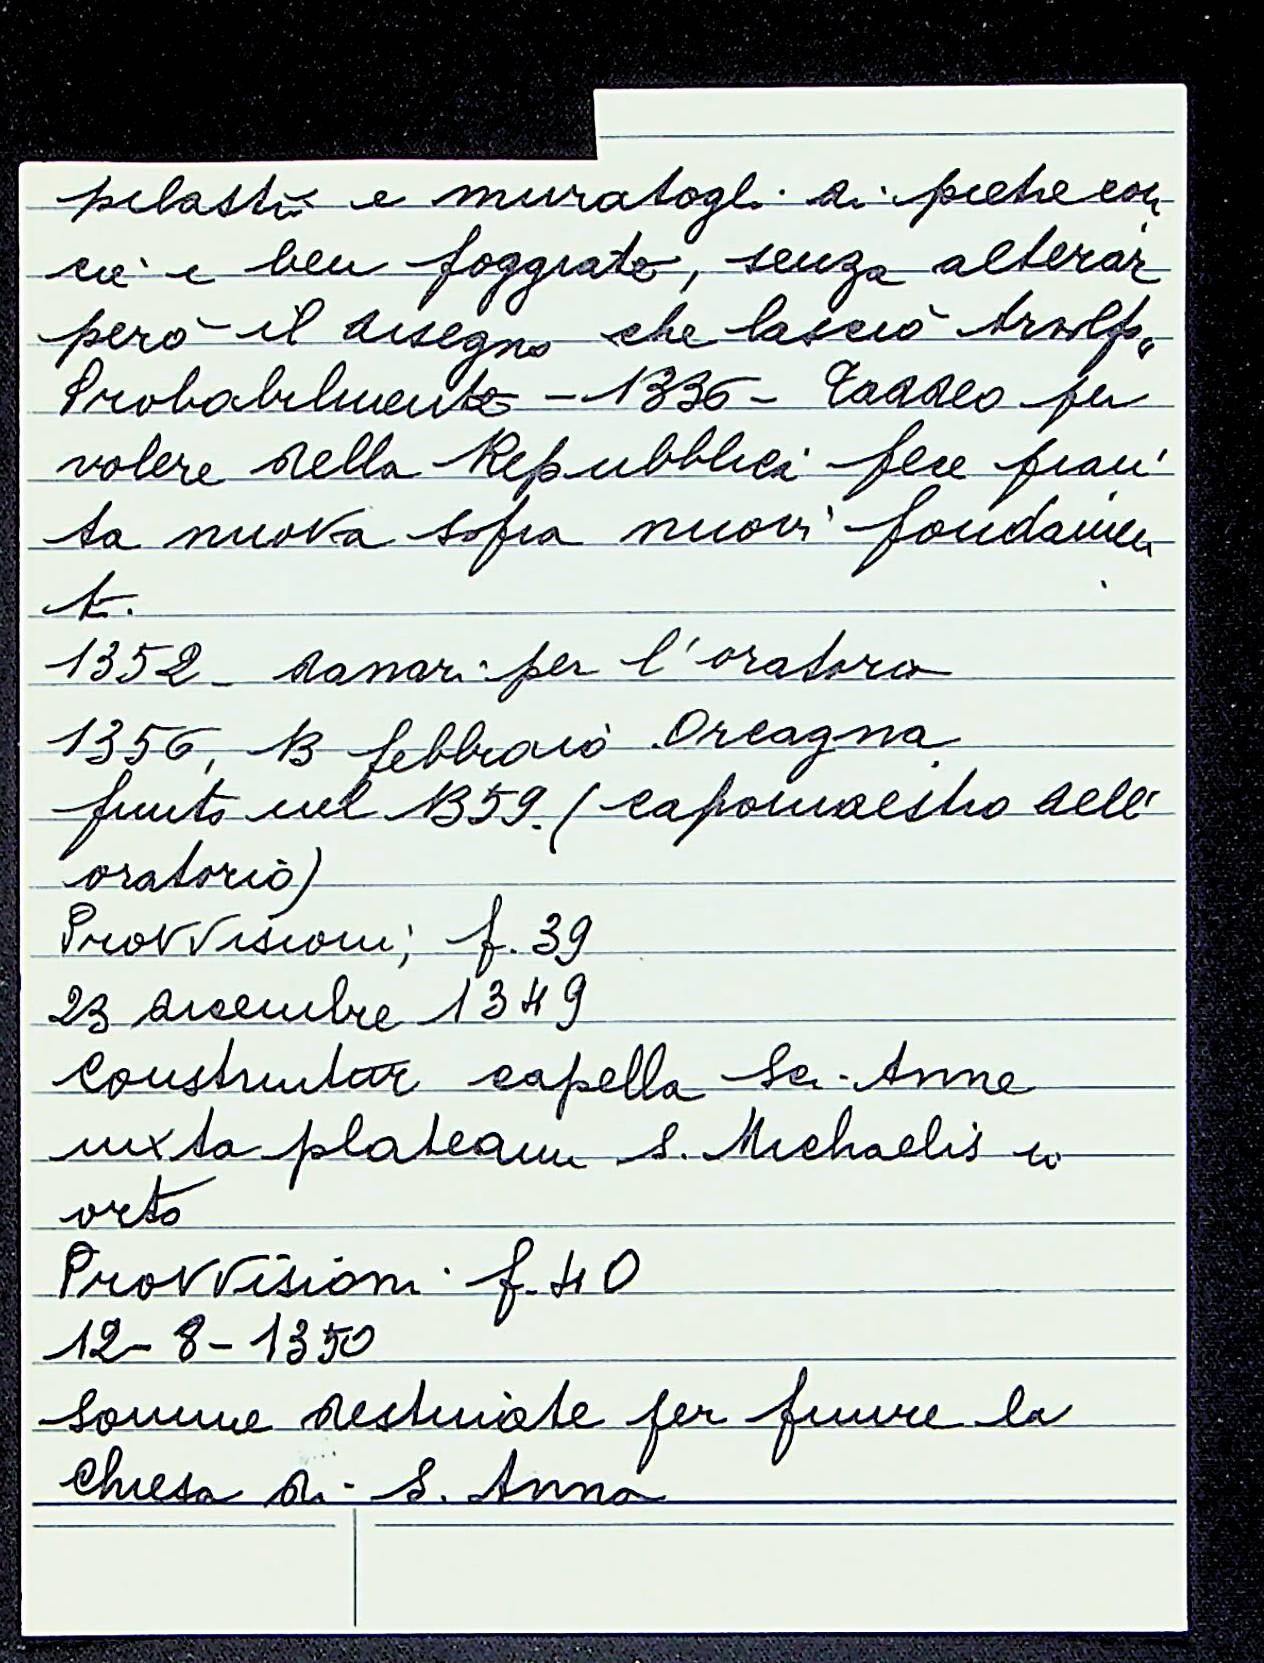 pilastri e muratogli di pietre con
cie e ben foggiate, senza alterar
però il disegno che lasciò Arnolfo.
Probabilmente - 1336 - Taddeo per
volere della Repubblica fece pian
ta nuova sopra nuovi fondamen
ti.
1352 - danari per l'oratorio
1356, 13 febbraio Orcagna
finito nel 1359. (capomaestro dell'
oratorio)
Provvisioni, f. 39
23 dicembre 1349
construitur capella Sce. Anne
iuxta plateam S. Michaelis in
orto
Provvisioni f. 40
12-8-1350
somme destinate per finire la
chiesa di S. Anna